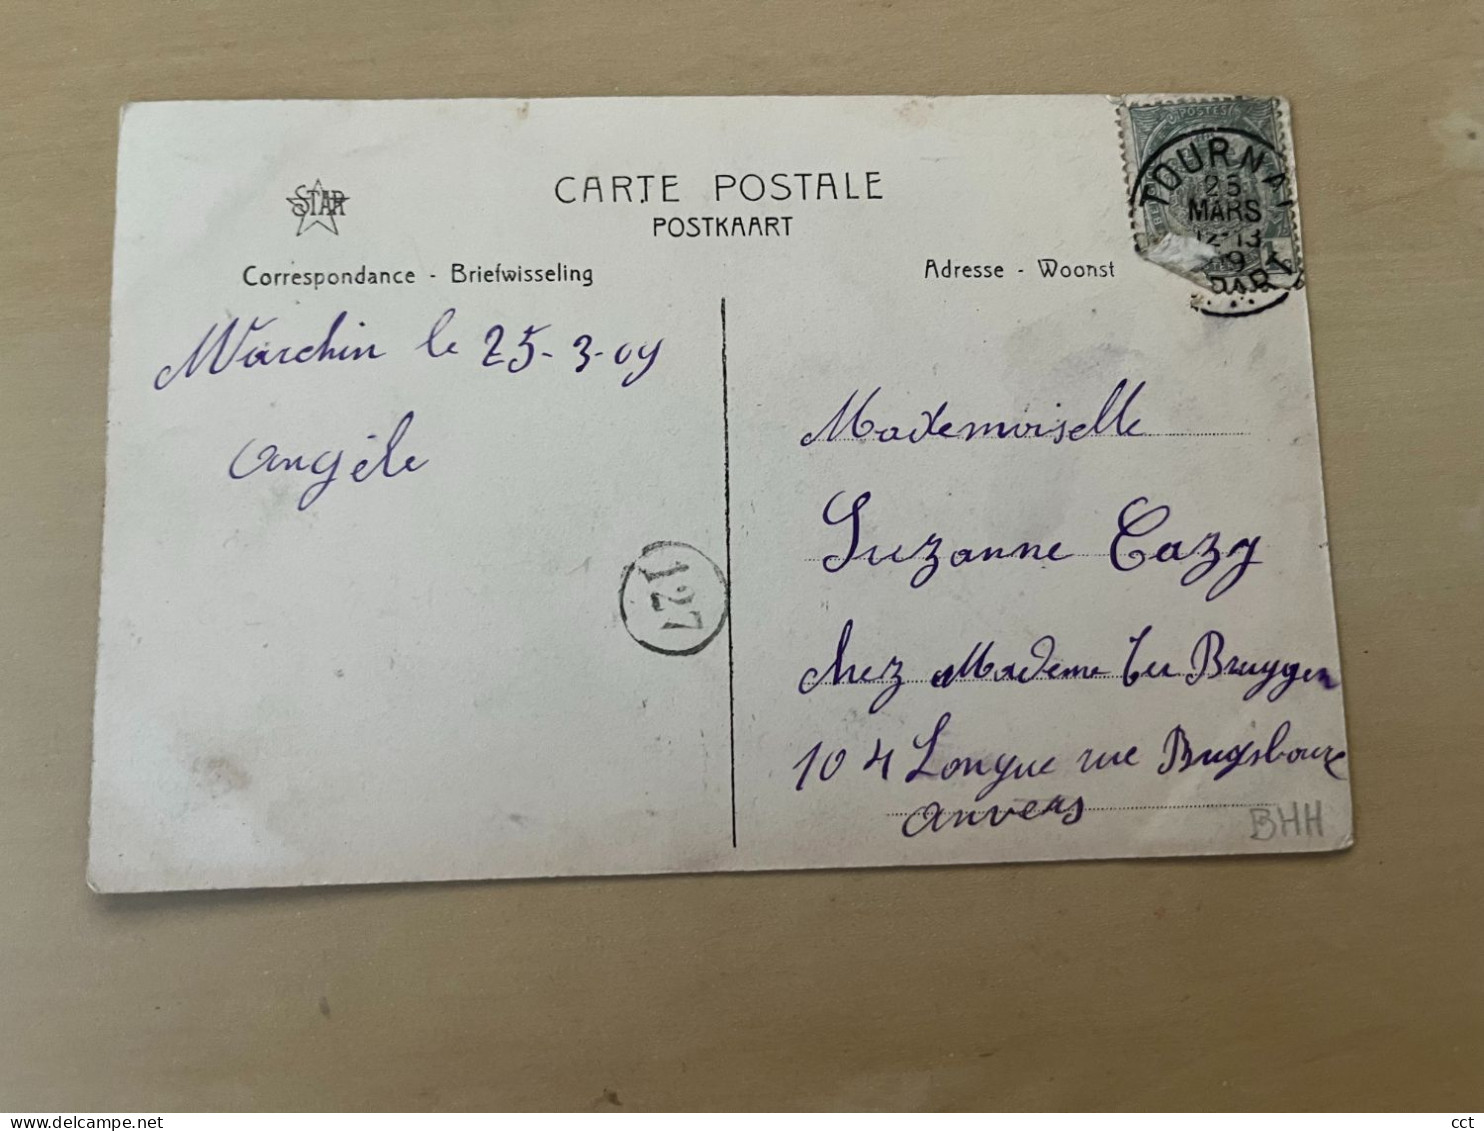 STAR
CARTE POSTALE
POSTKAART
Correspondance - Briefwisseling
Adresse - Woonst
POSTES
TOURNAI
25
MARS
12-13
DÉPART
Warchin le 25-3-09
Angèle
127
Mademoiselle
Suzanne Cazy
chez Madame Ter Bruggen
104 Longue rue
Anvers
BHH
cct